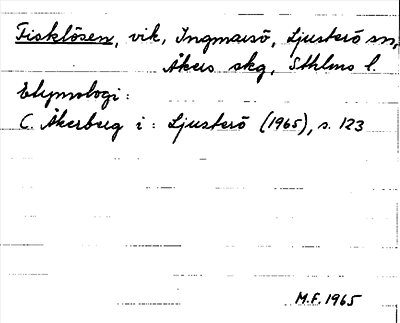 Fisklösen, vik, Ingmarsö, Ljusterö sn,
Åkers skg, Sthlms l.
Etymologi:
C. Åkerberg i: Ljusterö (1965), s. 123
M.F. 1965